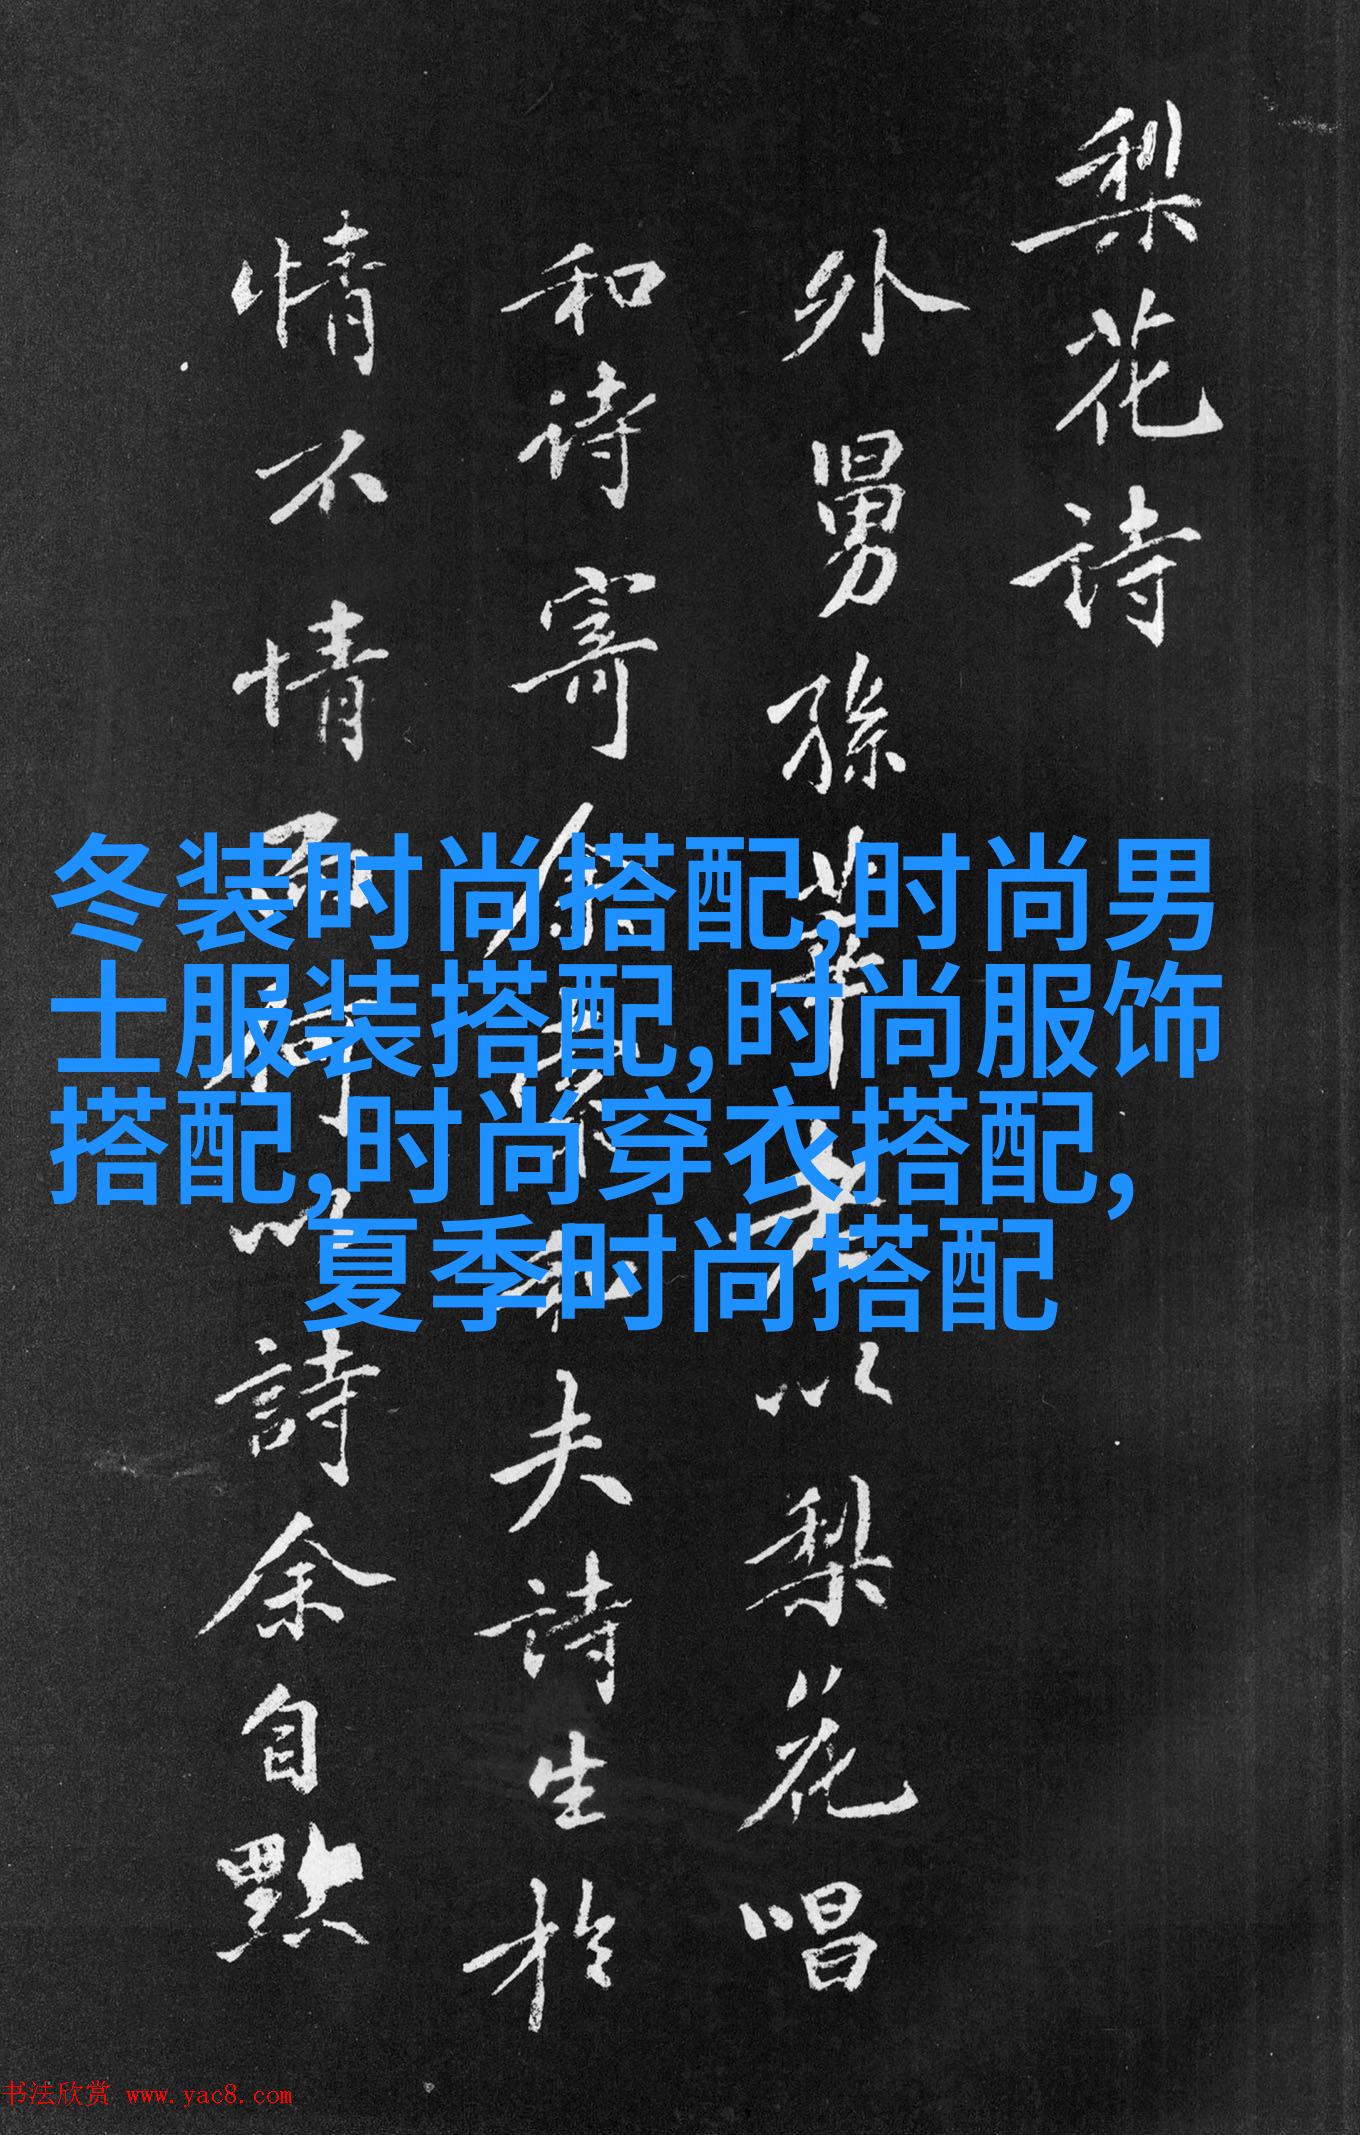 梨花詩
外舅孫莘老以梨花唱
和诗寄余素夫诗生於
情不情而何以詩余自
冬装时尚搭配,时尚男
士服装搭配,时尚服饰
搭配,时尚穿衣搭配,
夏季时尚搭配
书法欣赏 www.yac8.com